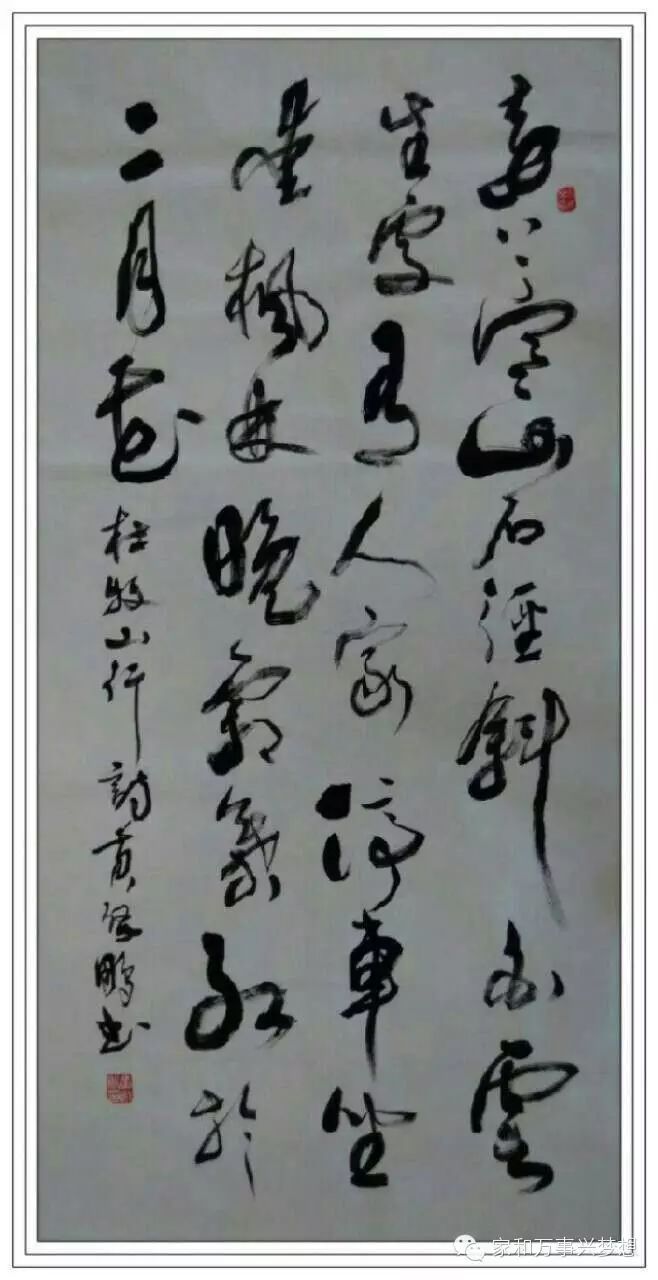 遠上寒山石徑斜白雲
生處有人家停車坐
愛楓林晚霜葉紅於
二月花
杜牧山行詩黄鵬书
家和万事兴梦想